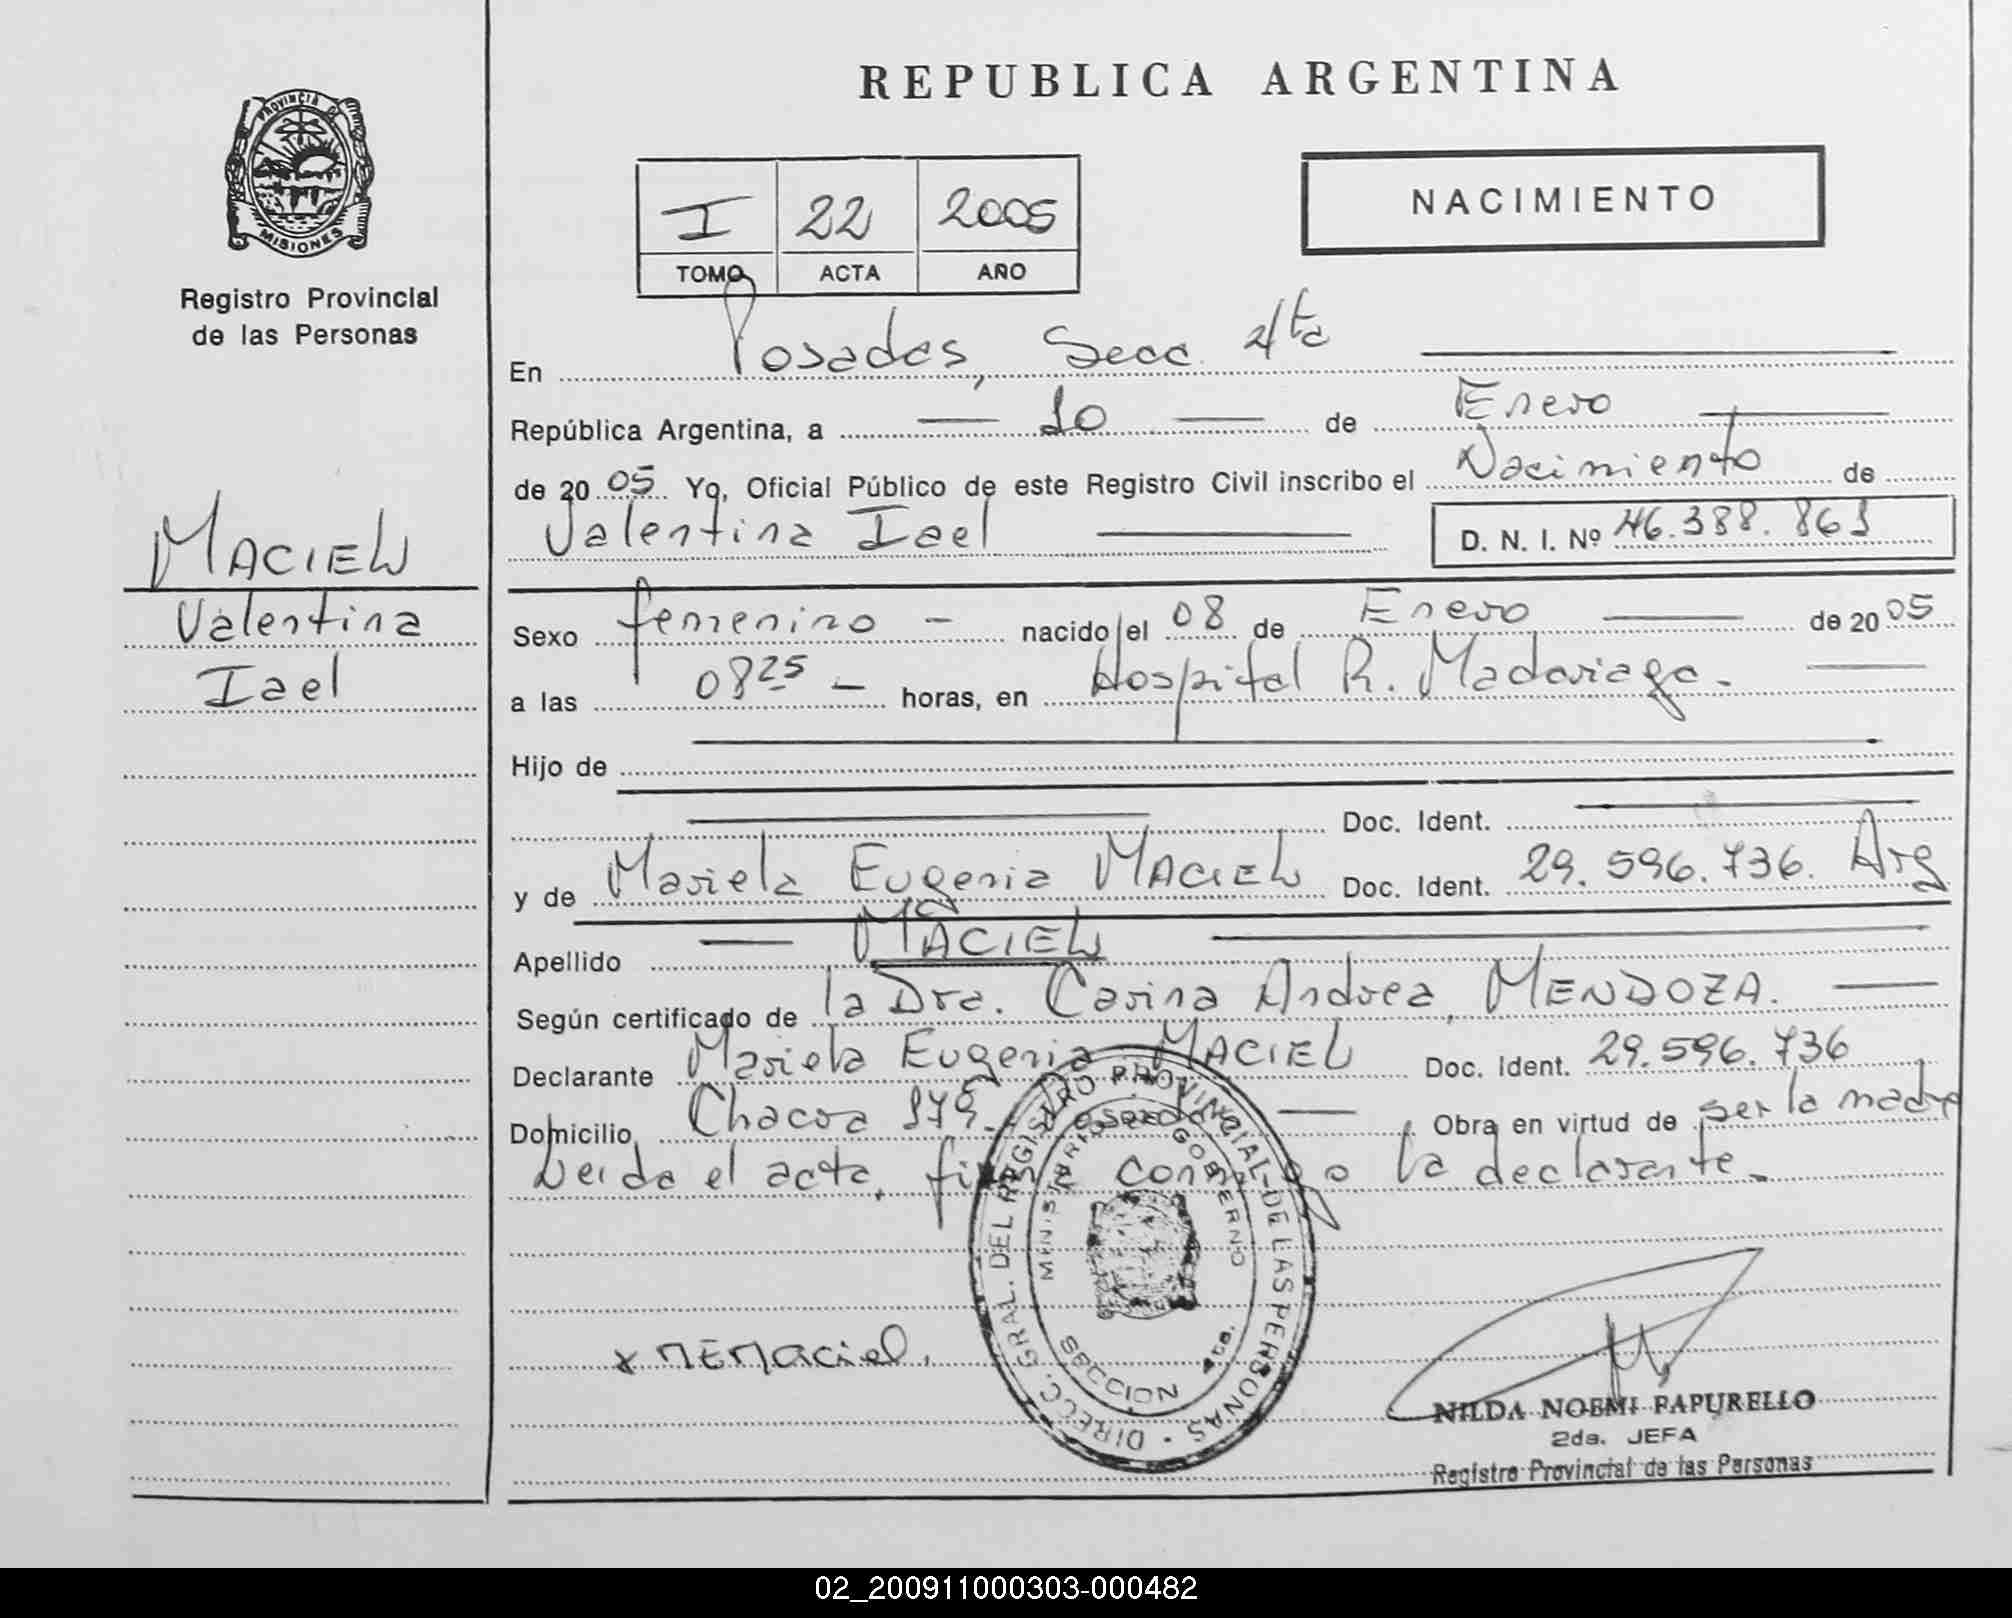 REPUBLICA ARGENTINA
PROVINCIA DE
MISIONES
Registro Provincial
de las Personas
I 22 2005
TOMO ACTA AÑO
NACIMIENTO
En Posadas, Secc. 4ta
República Argentina, a 10 de Enero
de 2005 Yo, Oficial Público de este Registro Civil inscribo el Nacimiento de
Valentina Iael D. N. I. Nº 46.388.861
MACIEL
Valentina
Iael
Sexo femenino - nacido el 08 de Enero de 2005
a las 0825 - horas, en Hospital R. Madariaga.
Hijo de
Doc. Ident.
y de Mariela Eugenia MACIEL Doc. Ident. 29.596.736. Arg
Apellido MACIEL
Según certificado de la Dra. Carina Andrea MENDOZA.
Declarante Mariela Eugenia MACIEL Doc. Ident. 29.596.736
Domicilio Chacra 179. Posadas Obra en virtud de ser la madre
Leida el acta, firma conmigo la declarante.
DIRECC. GRAL. DEL REGISTRO PROVINCIAL DE LAS PERSONAS
MINISTERIO DE GOBIERNO
SECCION 4ta.
x MEMaciel.
NILDA NOEMI PAPURELLO
2da. JEFA
Registro Provincial de las Personas
02_200911000303-000482